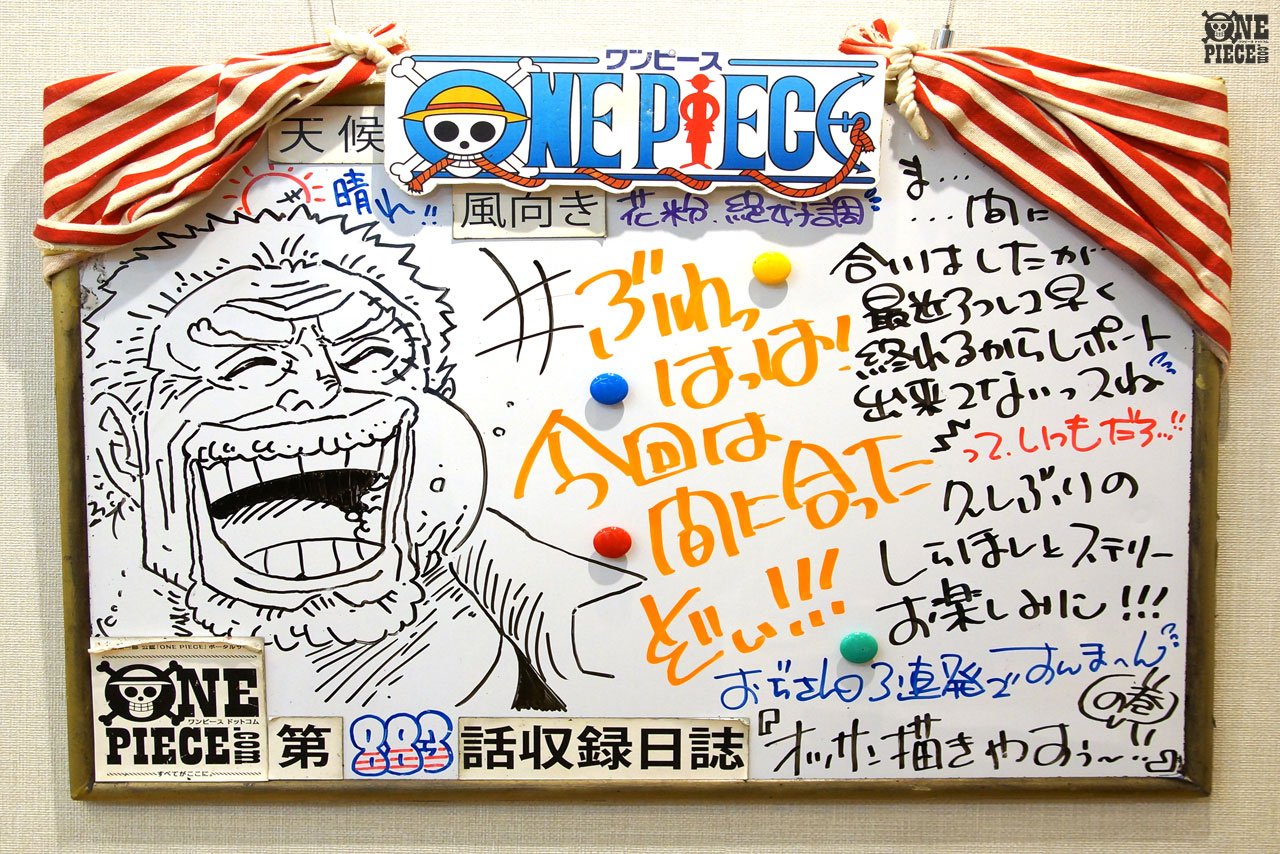 ONE
ワンピース ドットコム
PIECE.com
ワンピース
ONE PIECE
天候
晴れ!!
風向き
花粉、絶好調
ま…
…間に
合いはしたが…
最近3つしコ早く
終れるからレポート
出来てないっスね
って、いつもだろ…!!
久しぶりの
しらほしとステリー
お楽しみに!!!
おぢさん3連発ですんま〜ん
の巻
『オッサン描きやすぅ〜!!』
ぶわっ
はっは!
今回は
間に合った
どい!!!
ONE
ワンピース ドットコム
PIECE.com
すべてがここに。
第883話収録日誌